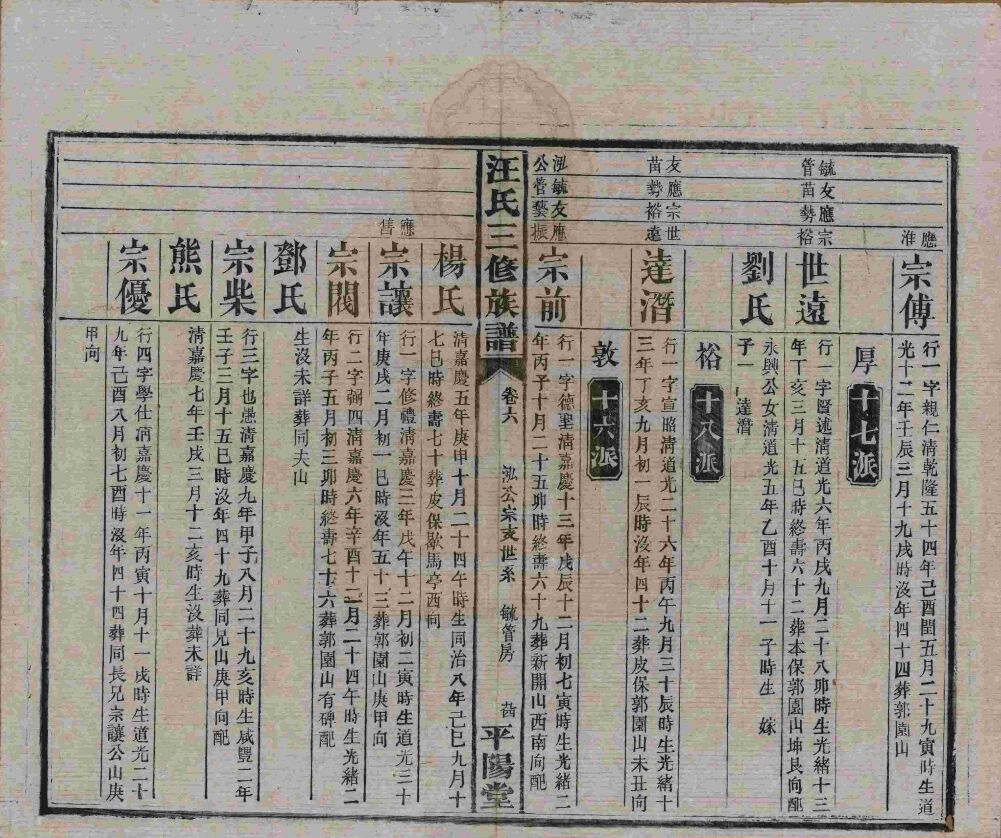 應淮
宗傅
行一字親仁清乾隆五十四年己酉閏五月二十九寅時生道
光十二年壬辰三月十九戌時沒年四十四葬郭園山
厚 十七派
毓友應宗
管苗勢裕
世遠
行一字賢述清道光六年丙戌九月二十八卯時生光緒十三
年丁亥三月十五巳時終壽六十二葬本保郭園山坤艮向配
劉氏
永興公女清道光五年乙酉十月十一子時生 嫁
子一 達潛
裕 十八派
友應宗世
苗勢裕遠
達潛
行一字宣昭清道光二十六年丙午九月三十辰時生光緒十
三年丁亥九月初一辰時沒年四十二葬皮保郭園山未丑向
敦 十六派
泓毓友應
公管藝振
宗前
行一字德聖清嘉慶十三年戊辰十二月初七寅時生光緒二
年丙子十月二十五卯時終壽六十九葬新開山西南向配
汪氏三修族譜 卷六 泓公宗支世系 毓管房 平陽堂
楊氏
清嘉慶五年庚申十月二十四午時生同治八年己巳九月十
七巳時終壽七十葬皮保歇馬亭西向
應啓
宗讓
行一字修禮清嘉慶三年戊午十二月初二寅時生道光三十
年庚戌二月初一巳時沒年五十三葬郭園山庚甲向
宗閥
行二字弼四清嘉慶六年辛酉十二月二十四午時生光緒二
年丙子五月初三卯時終壽七十六葬郭園山有碑配
鄧氏
生沒未詳葬同夫山
宗柴
行三字也愚清嘉慶九年甲子八月二十九亥時生咸豐二年
壬子三月十五巳時沒年四十九葬同兄山庚甲向配
熊氏
清嘉慶七年壬戌三月十二亥時生沒葬未詳
宗優
行四字學仕清嘉慶十一年丙寅十月十一戌時生道光二十
九年己酉八月初七酉時沒年四十四葬同長兄宗讓公山庚
甲向